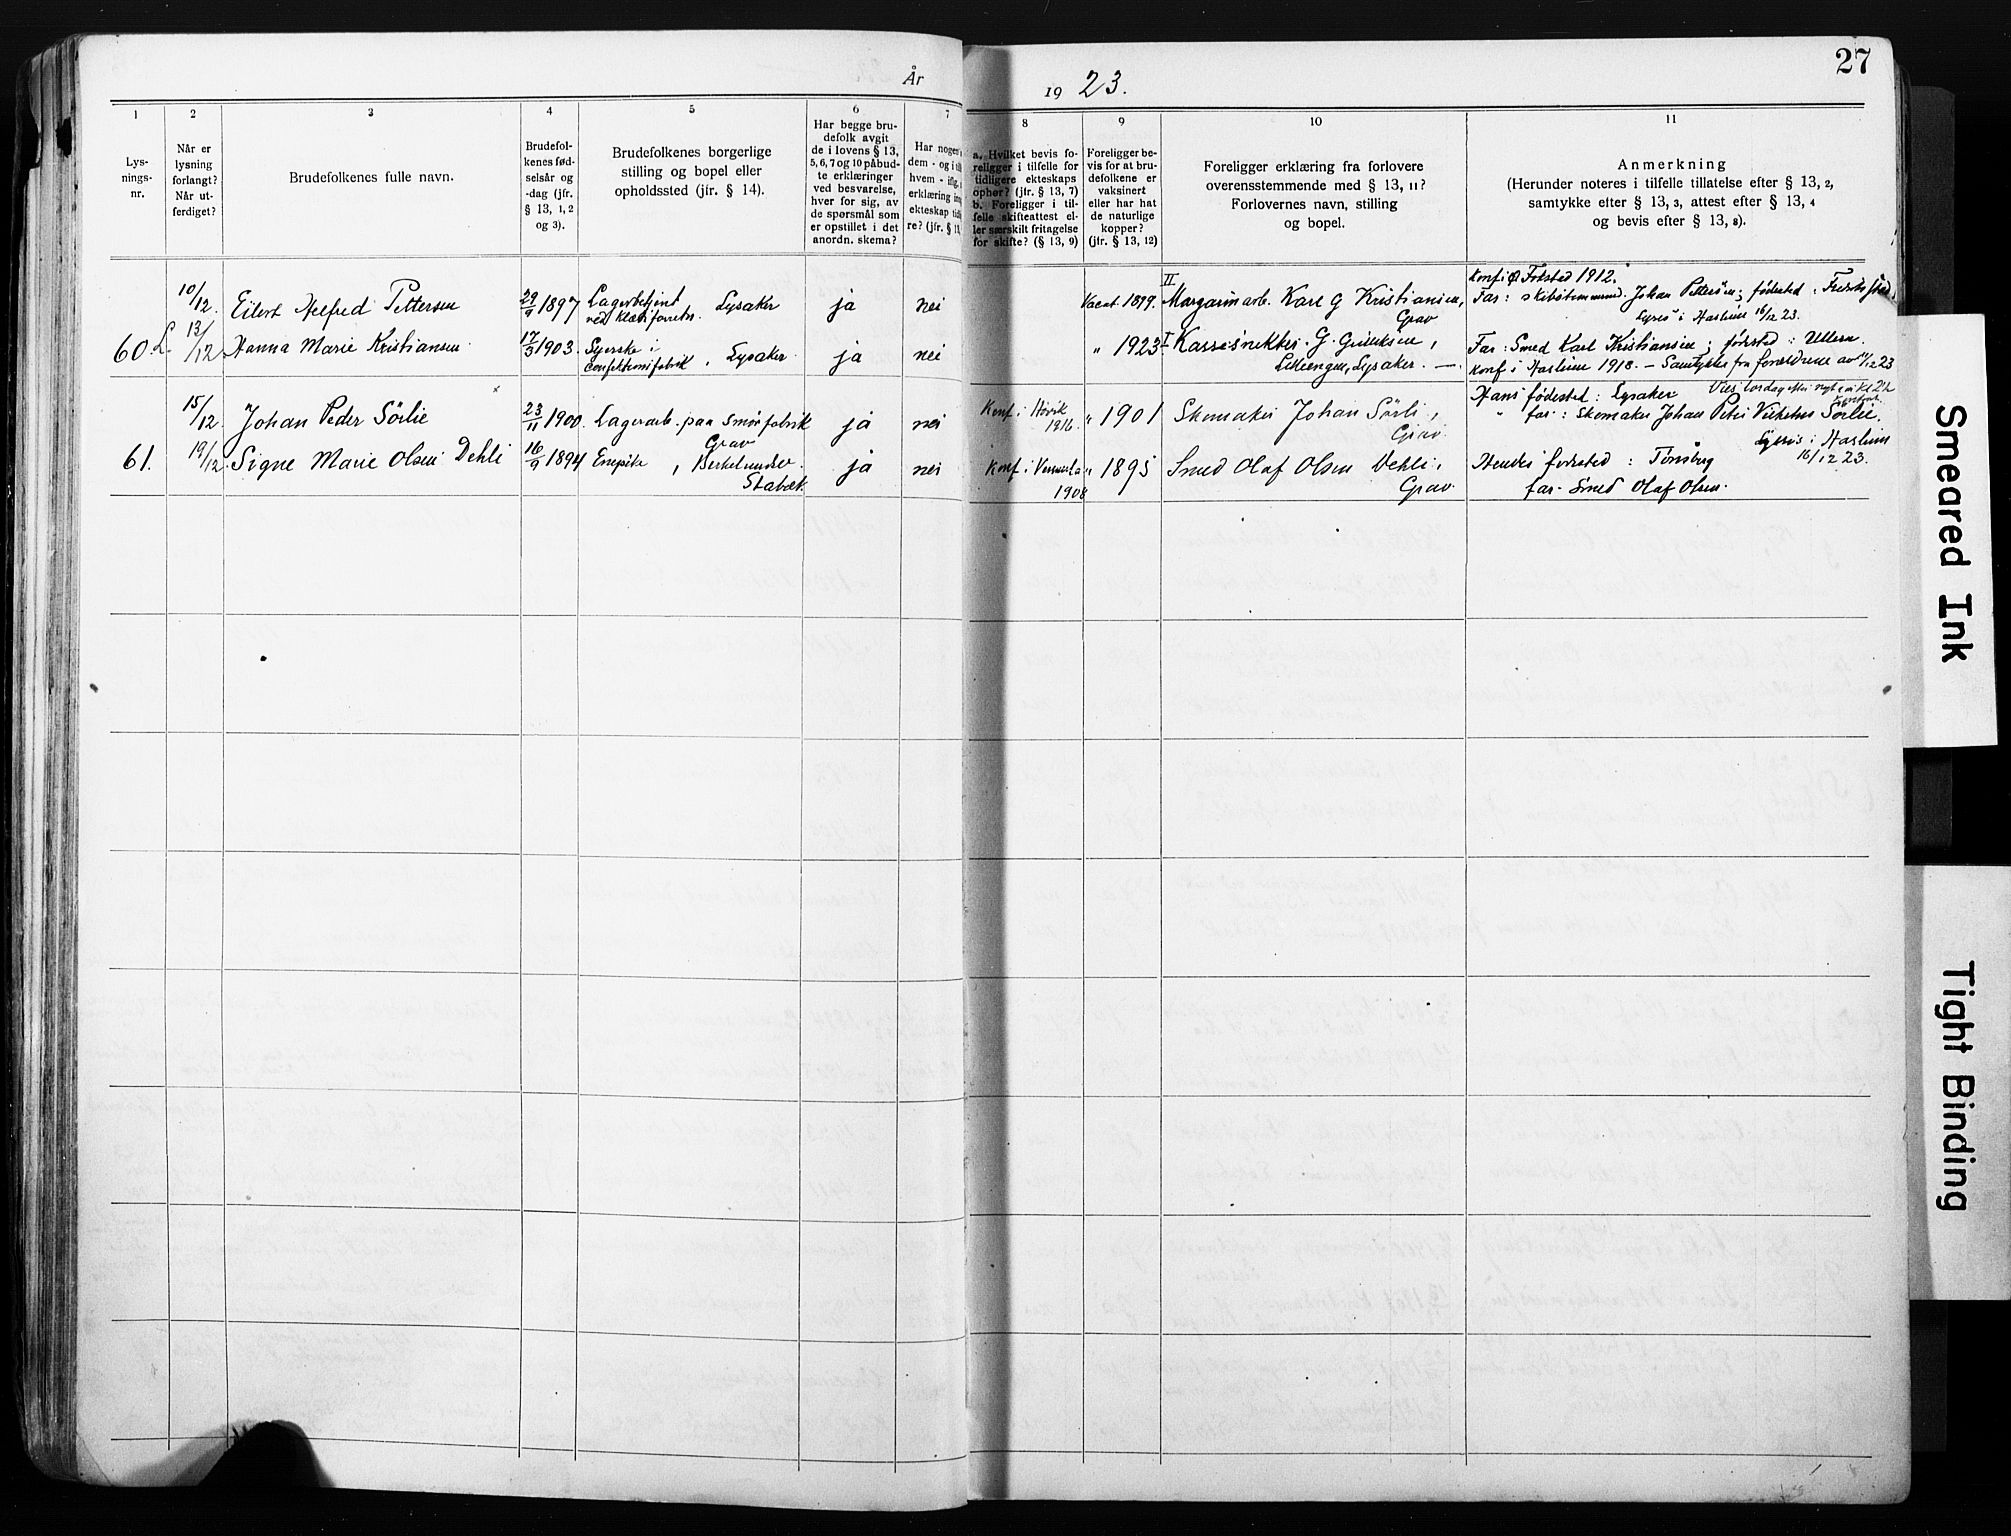 27
År 1923.
1 2 3 4 5 6 7 8 9 10 11
Lys-
nings-
nr.
Når er
lysning
forlangt?
Når ut-
ferdiget?
Brudefolkenes fulle navn.
Brudefol-
kenes fød-
selsår og
-dag (jfr.
§ 13, 1, 2
og 3).
Brudefolkenes borgerlige
stilling og bopel eller
opholdssted (jfr. § 14).
Har begge bru-
defolk avgit
de i lovens § 13,
5, 6, 7 og 10 påbud-
te erklæringer
ved besvarelse,
hver for sig, av
de spørsmål som
er opstillet i det
anordn. skema?
Har nogen
dem - og i
hvem - iflg.
erklæring
ekteskap
re? (jfr. §
a. Hvilket bevis fo-
religger i tilfelle for
tidligere ekteskaps
ophør? (jfr. § 13, 7)
b. Foreligger i til-
felle skifteattest el-
ler særskilt fritagelse
for skifte? (§ 13, 9)
Foreligger be-
vis for at bru-
defolkene er
vaksinert
eller har hat
de naturlige
kopper?
(jfr. § 13, 12)
Foreligger erklæring fra forlovere
overensstemmende med § 13, 11?
Forlovernes navn, stilling
og bopel.
Anmerkning
(Herunder noteres i tilfelle tillatelse efter § 13, 2,
samtykke efter § 13, 3, attest efter § 13, 4
og bevis efter § 13, 8).
10/12. Eilert Alfred Pettersen 29/9 1897 Lagerbetjent Lysaker ja nei Vacat. 1899. II Margarinarb. Karl G Kristiansen, Grav
Konf i Fokstad 1912.
Far: Johan Pettersen; fødested: Fredrikstad.
Lyses i Haslum 16/12 23.
60. L. 13/12 Hanna Marie Kristiansen 17/3 1903. Syerske i Confektionsfabrik, Lysaker. ja nei " 1923 I Kassesnekker G.
Lilleengen, Lysaker.
Far: Smed Karl Kristiansen; fødested: Ullern.
Konf i Haslum 1918. – Samtykke fra forældrene av 11/12 23
15/12 Johan Peder Sörlie 23/11 1900. Lagerarb. paa Smörfabrik Grav ja nei Konf. i Hövik 1916. " 1901 Skomaker Johan Sörli, Grav.
Hans fødested: Lysaker
" far: Skomaker Johan Peter Vilhelm Sörlie.
Lyses i Haslum
16/12 23.
61. 19/12. Signe Marie Olsen Dehli 16/9 1894 Enepike, Stabæk. ja nei Konf i 1908 " 1895 Smed Olaf Olsen Dehli, Grav.
Hendes fødested: Tønsberg
far: Smed Olaf Olsen.
Smeared Ink
Tight Binding